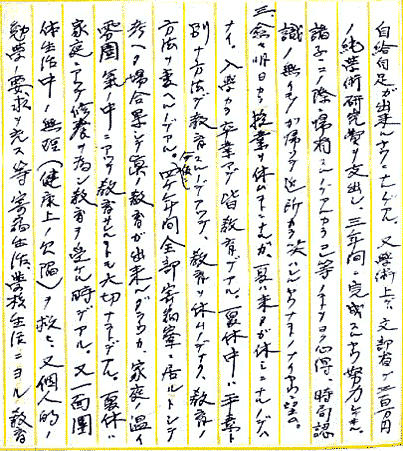 自給自足が出来ルヤウニナルデス。又学術上デハ文部省デ二百万円
ノ純学術研究費ヲ支出シ、三年間ニ完成スルヤウ努力シテ
諸子ニノ際ニ帰村スルデアルカラ己等ノナスベキ心得、時局認
識ノ無イモノガ帰ツテ近所カラ笑ハレルヤウナコトノナイ様ニ望ム。
三、愈々明日カラ授業ヲ休ムコトニナルガ、夏ガ来タガ休ミニナルノデハ
ナイ。入学カラ卒業マデ皆教育デアル。夏休中ハ平素ト
別ナ方法デ教育スルノデアツテ、教育ヲ休ムノデナク、教育ノ
方法ヲ変ヘルノデアル。今仮ニ四ケ年間全部寄宿寮ニ居ルトシテ
考ヘタ場合果シテ真ノ教育ガ出来ルダラウカ、家庭ノ温イ
雰囲気ノ中ニアツテ教育サレルコトモ大切ナコトデアル。夏休ハ
家庭ニアツテ修養ヲ為シ教育ヲ受ケル時デアル。又一面団
体生活中ノ無理(健康上ノ欠陥)ヲ救ヒ、又個人的ノ
勉学ノ要求ヲ充ス等寄宿生活、学校生活ニヨル教育